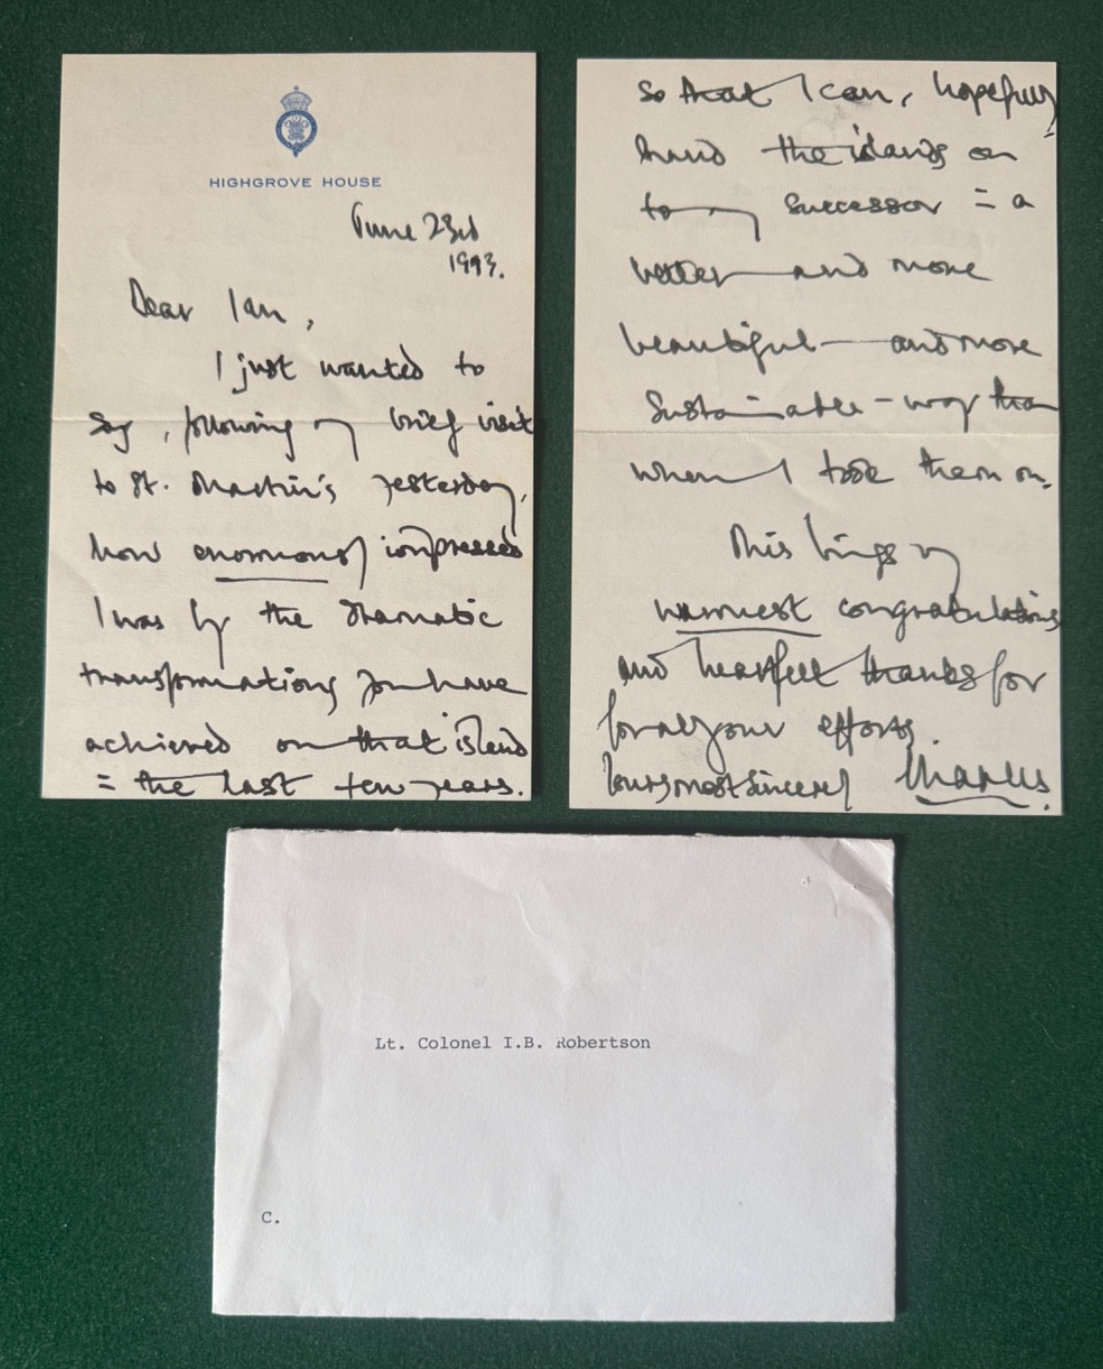 HIGHGROVE HOUSE
June 23rd
1993.
Dear Ian,
I just wanted to
say, following my brief visit
to St. Martin's yesterday,
how enormously impressed
I was by the dramatic
transformations you have
achieved on that island
in the last few years.
so that I can, hopefully
hand the islands on
to my successor in a
better and more
beautiful - and more
sustainable - way than
when I took them on.
This brings my
warmest congratulations
and heartfelt thanks for
for all your efforts.
Yours most sincerely Charles.
Lt. Colonel I.B. Robertson
C.